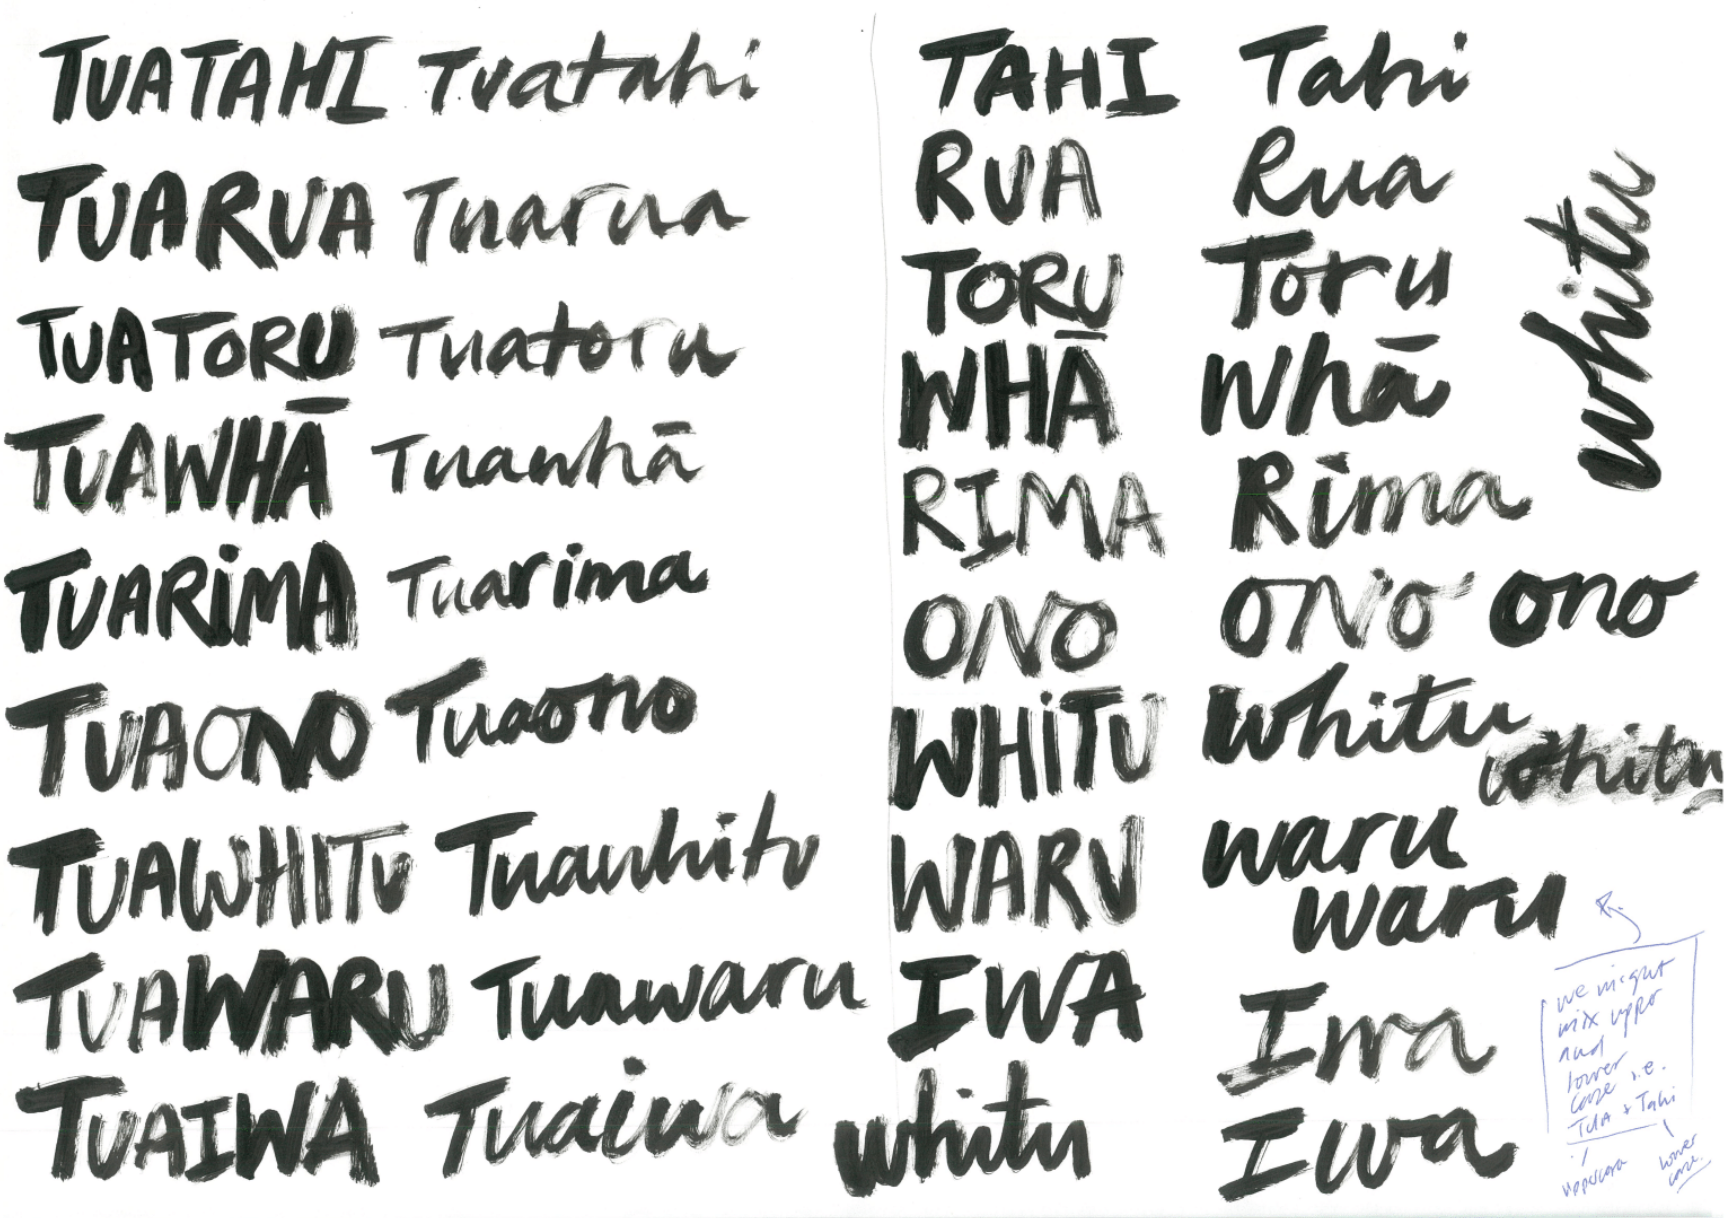 TUATAHI Tuatahi
TUARUA Tuarua
TUATORU Tuatoru
TUAWHĀ Tuawhā
TUARiMA Tuarima
TUAONO Tuaono
TUAWHITU Tuawhitu
TUAWARU Tuawaru
TUAIWA Tuaiwa
TAHI Tahi
RUA Rua
TORU Toru
WHĀ Whā
RIMA Rima
ONO ONO ono
WHiTU Whitu
whitu
WARU waru
waru
IWA Iwa
whitu Iwa
whitu
we might
mix upper
and
lower
case i.e.
TUA + Tahi
uppercase
lower
case.